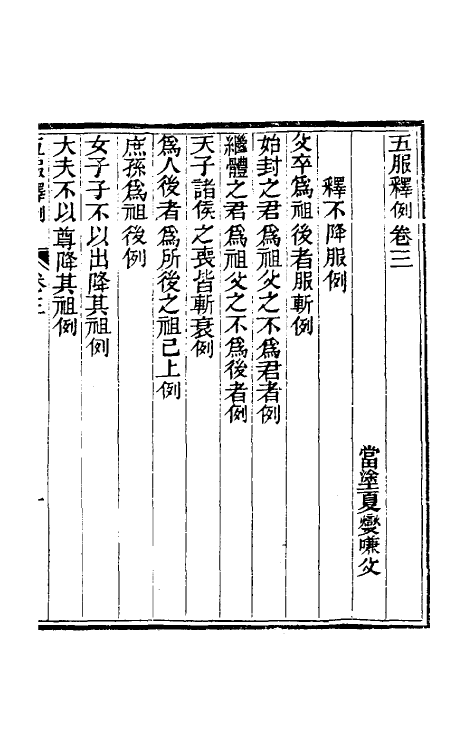 五服釋例卷三
當塗夏燮嗛父
釋不降服例
父卒爲祖後者服斬例
始封之君爲祖父之不爲君者例
繼體之君爲祖父之不爲後者例
天子諸侯之喪皆斬衰例
爲人後者爲所後之祖已上例
庶孫爲祖後例
女子子不以出降其祖例
大夫不以尊降其祖例
五服釋例 卷三 一